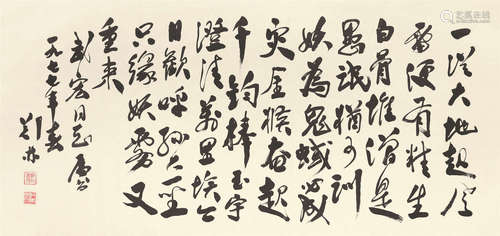 一從大地起风
雷便有精生
白骨堆僧是
愚氓猶可训
妖為鬼蜮必成
灾金猴奋起
千钧棒玉宇
澄清萬里埃今
日歡呼孙大圣
只缘妖雾又
重来
同志属
一九七七年春